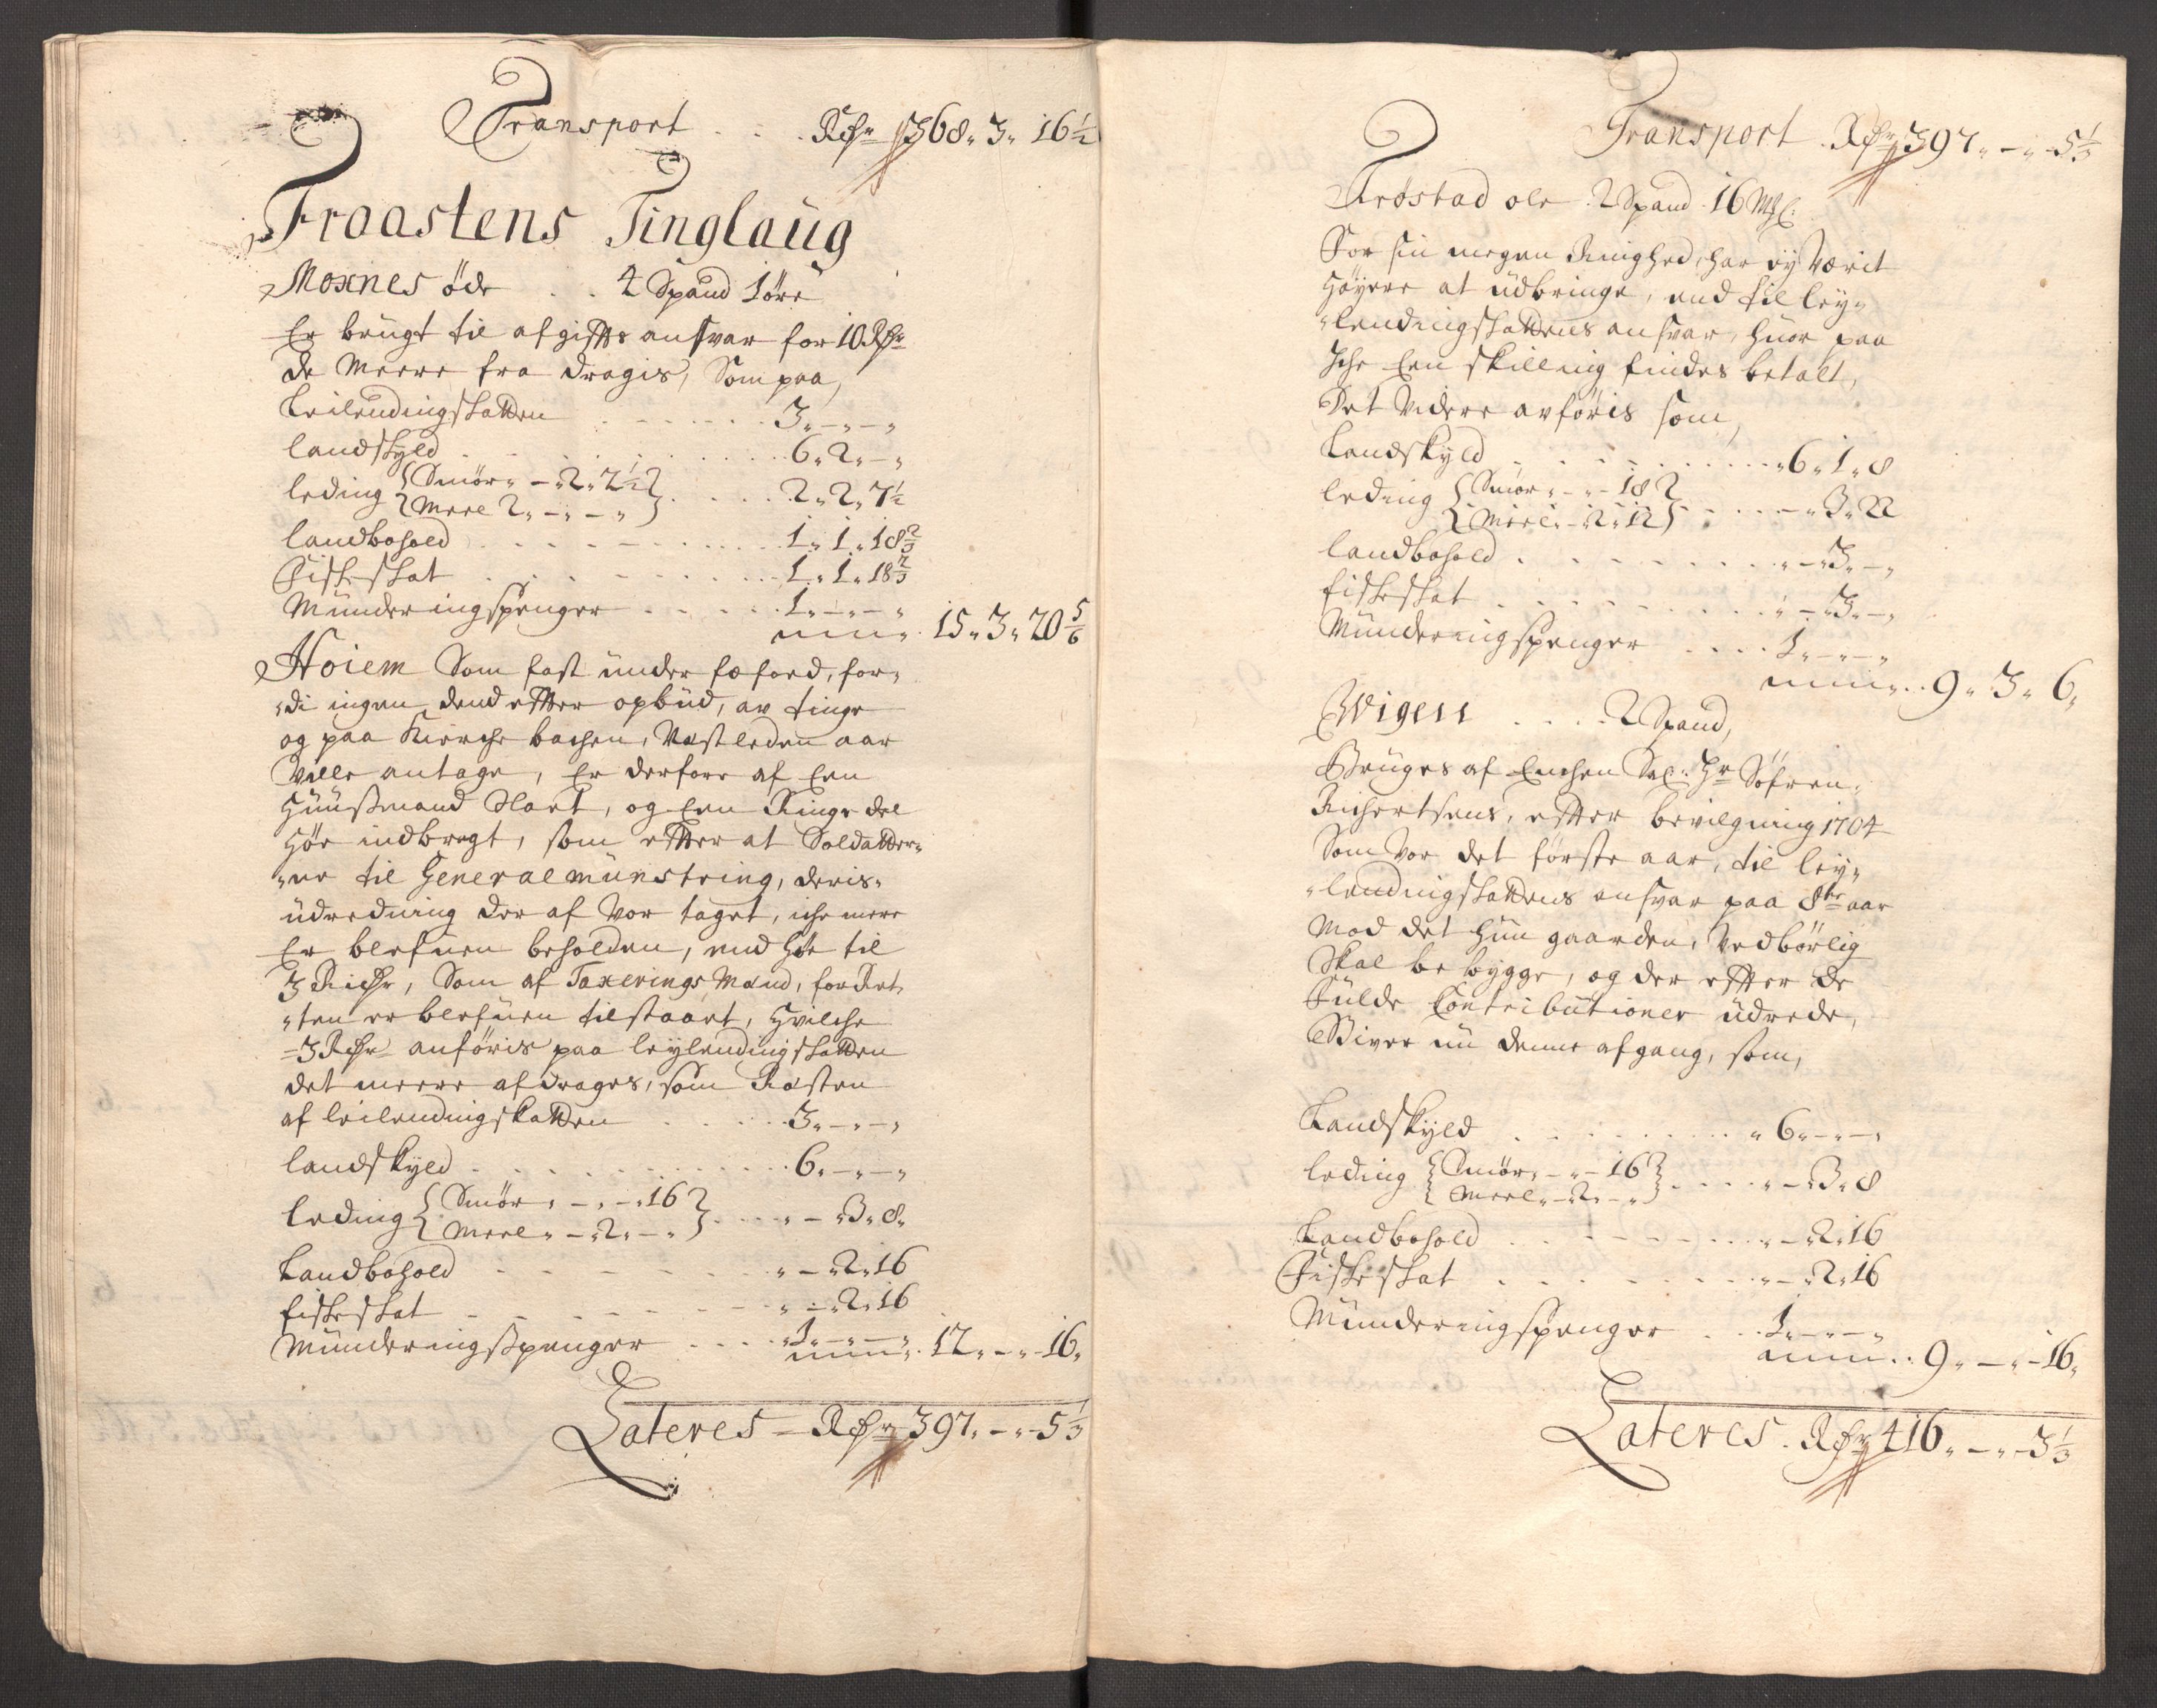 Transport . . . Rdr 368„ 3„ 16½
Fraastens Tinglaug
Moxnes öde . . 4 Spand 1öre
Er brugt til afgifts ansvar for 10 Rdr
de Meere fra dragis, Som paa,
Leilendingskatten . . . . . . 3„-„-„
landskyld . . . . . . 6„2„-„
leding { Smör„ - „2„ 2½ } . . . . 2„2„7½
{ Meel 2„ - „ - „ }
landbohold . . . . . . 1„1„18⅔
Fiskeskat . . . . . . 1„1„18⅔
Munderingspenger . . . . . 1„-„-„
15„3„20⅚
Hoiem Som fast under fæfoed, for„
„di ingen dend effter opbud, av tinge
og paa Kirche bachen, Vastleden aar
Ville antage, Er derfore af Een
Huusmand Slaet, og Een Ringe del
Höe indbragt, som effter at Soldatter„
„ne til Generalmünstring, deris„
udredning der af Vor taget, iche mere
Er blefuen beholden, end Höe til
3 Richr, Som af Taxerings Mænd, for Ret„
„ten er blefuen tilstaaet, Hvilche
3 Rdr anföris paa leylendingskatten
det meere afdrages, som Resten
af leilendingskatten . . . . . 3„-„-„
landskyld . . . . . . 6„-„-„
leding { Smör„ - „ - „16 } . . . . „ - „3„8„
{ Meel„ - „2„ - „ }
Landbohold . . . . . . „ - „2„16
fiskeskat . . . . . . „ - „2„16
Munderingspenger . . . . „1„-„-„
12„ - „ 16„
Lateres - Rdr 397„ - „ 5⅓
Transport . Rdr 397„ - „ 5⅓
Tröstad öde . 2 Spand 16 Mkl:
For sin megen Ringhed, har ey Værit
Höyere at udbringe, end til ley„
„lendingskattens ansvar, Huor paa
Iche Een skilling findes betalt,
Det Videre avföris som,
Landskyld . . . . . . „6„1„8
leding { Smör„ - „ - 18 } . . . . - „3„22
{ Meel„ - „2„12 }
landbohold . . . . . . „ - „3„ - „
fiskeskat . . . . . . „ - „3„ - „
Munderingspenger . . . . 1„-„-„
9„ 3„ 6„
Wigen . . . . 2 Spand,
Bruges af Enchen Sal: Hr Söfren
Richertsens, effter bevilgning 1704
Som Vor det förste aar, til ley„
„lendingskattens ansvar paa 8te aar
Mod det Hun gaarden, Vedbörlig
Skal be bygge, og der effter de
Fulde Contributioner udrede,
Bliver nu denne afgang, som,
Landskyld . . . . . . „ 6„-„-„
leding { Smör„ - „ - 16 } . . . . „ - „3„8
{ Meel„ - „2„ - „ }
Landbohold . . . . . . „ - „2„16
Fiskeskat . . . . . . „ - „2„16
Munderingspenger . . . 1„-„-„
9„ - „ - 16„
Lateres . Rdr 416„ - „ - 3⅓